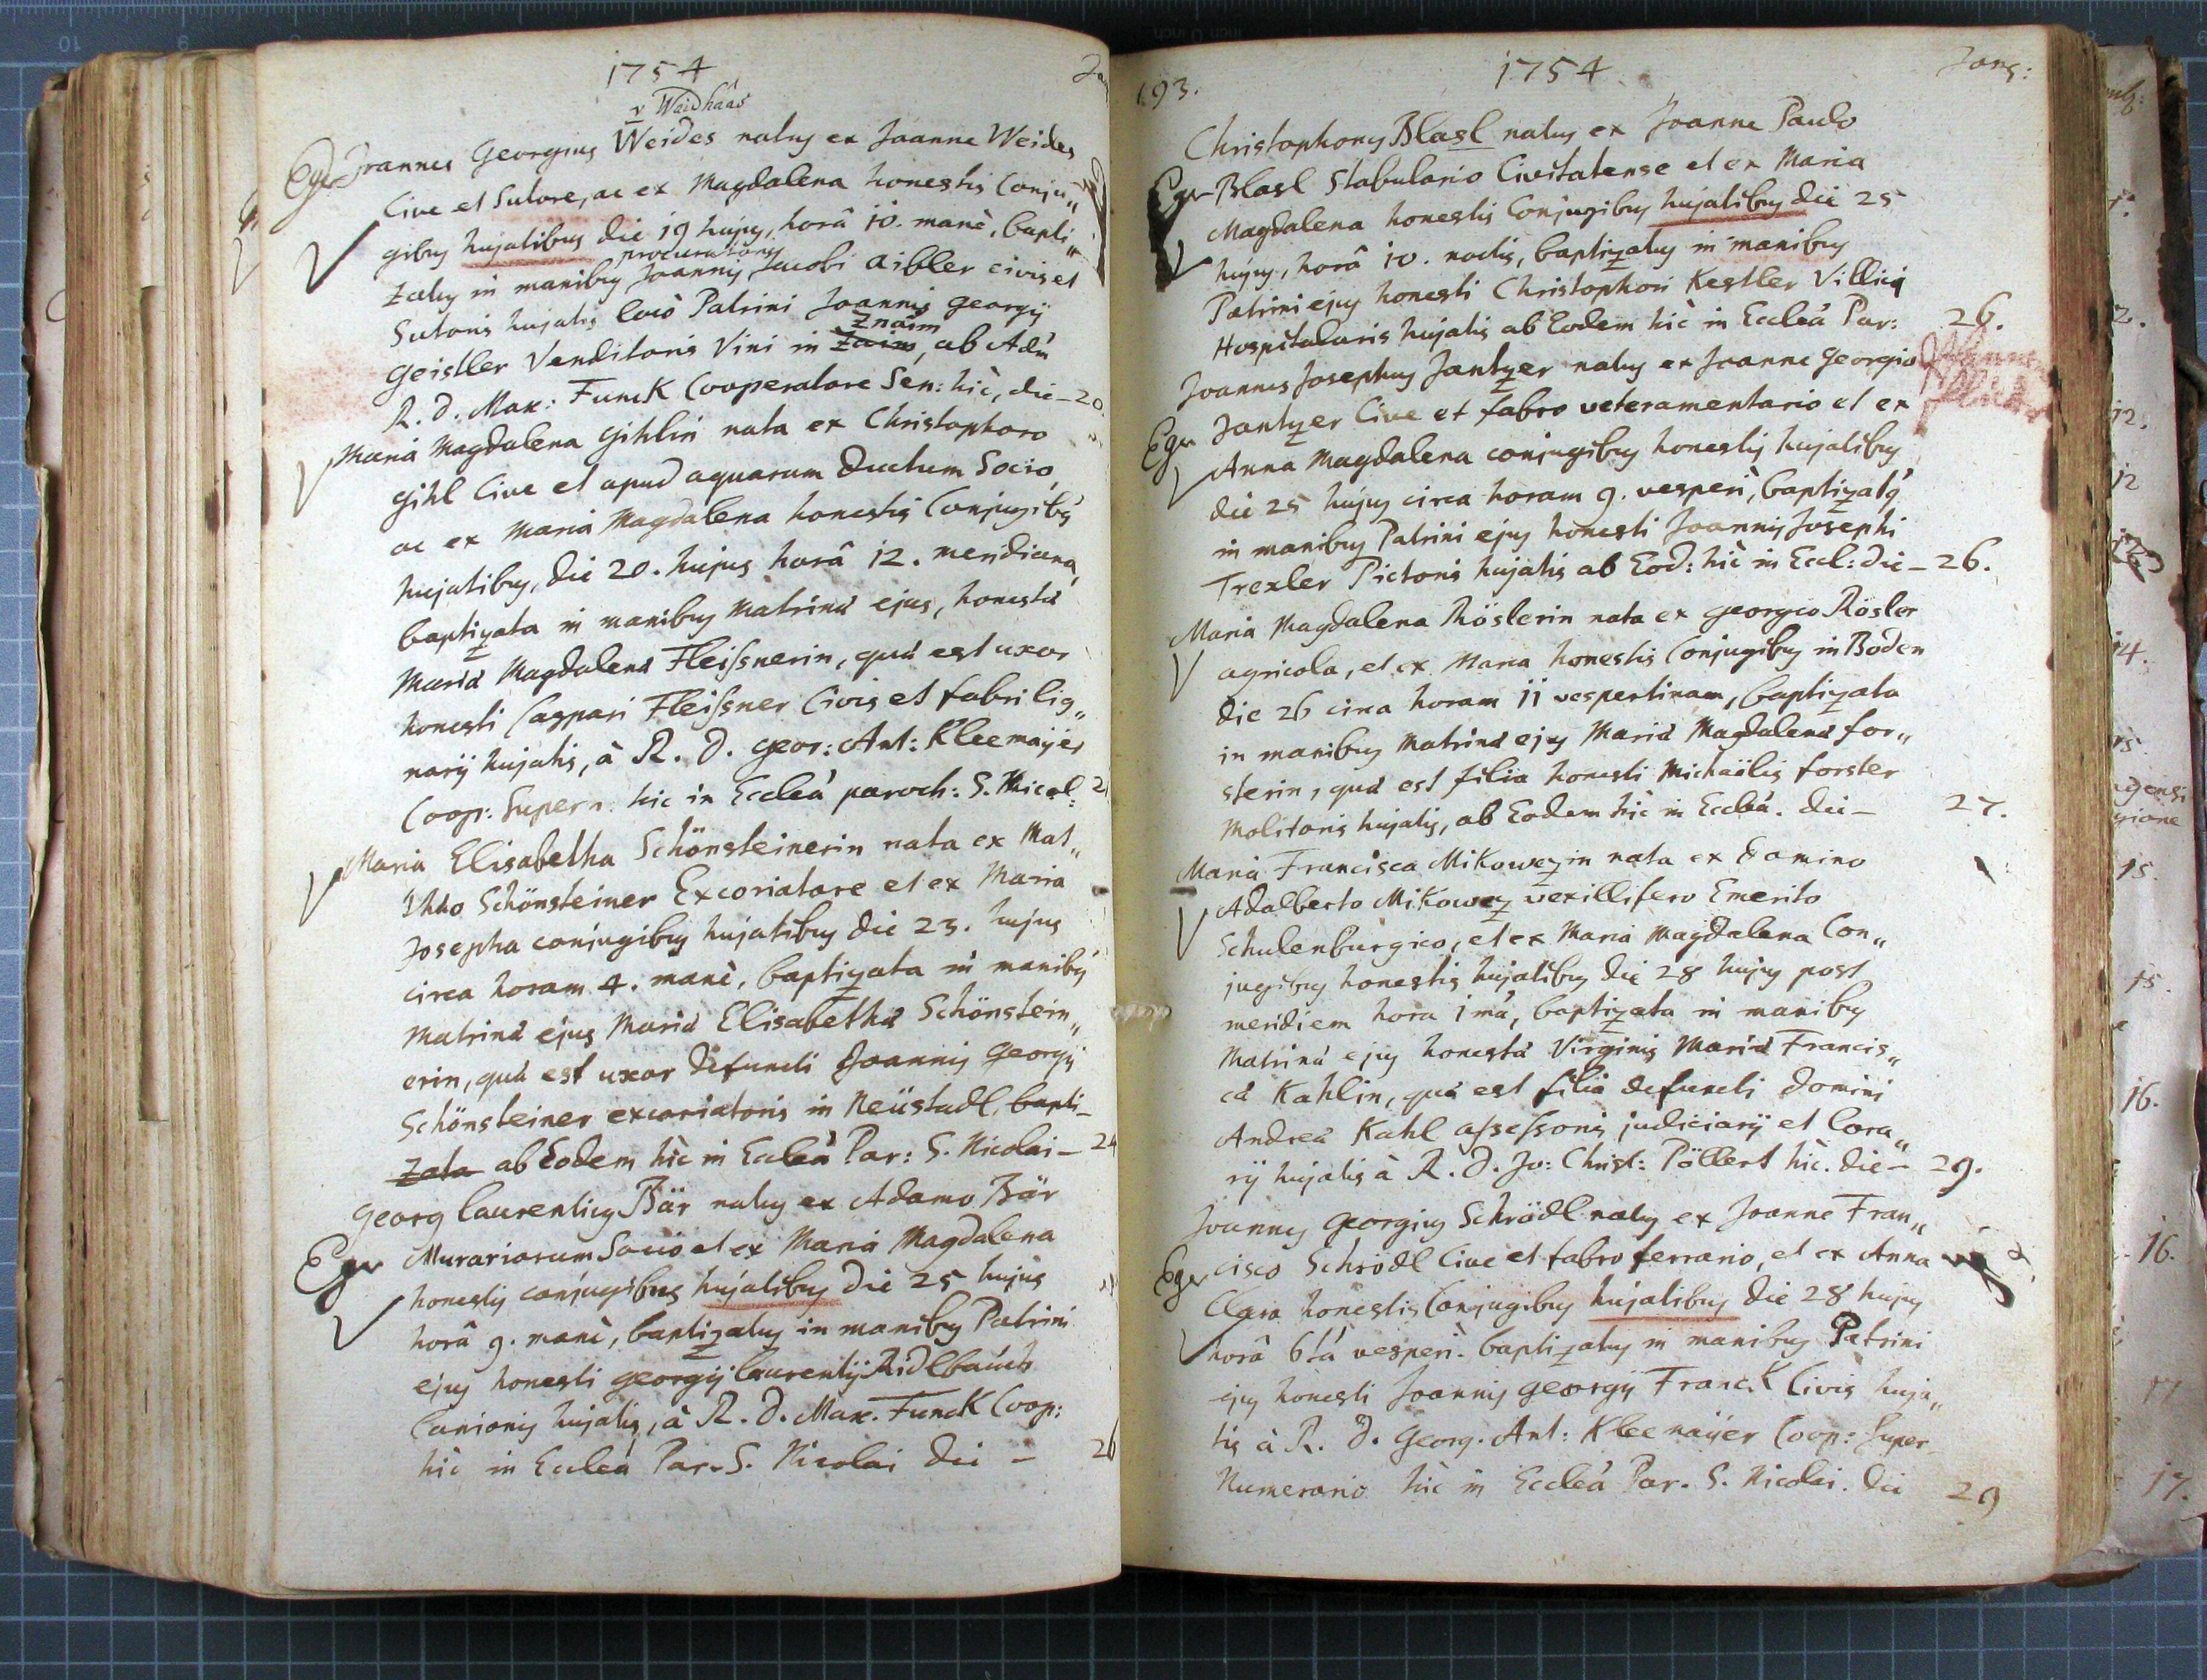 1754
Jan
v Waidhaas
Eger Joannes Georgius Weides natus ex Joanne Weides
Cive et Sutore, ac ex Magdalena honestis Conju„
gibus hujatibus die 19 hujus, horâ 10. manè, bapti„
zatus in manibus procuratorijs Joannis Jacobi Aibler civis et
Sutoris hujatis locò Patrini Joannis Georgij
Znaim
Geistler Venditoris Vini in Zaim, ab Adm
R. D. Max: Funck Cooperatore Sen: hìc, die – 20.
Maria Magdalena Gihlin nata ex Christophoro
Gihl Cive et apud aquarum ductum Socio,
ac ex Maria Magdalena honestis Conjugibus
hujatibus, die 20. hujus horâ 12. meridiana,
baptizata in manibus Matrinæ ejus, honestæ
Mariæ Magdalenæ Fleissnerin, quæ est uxor
honesti Caspari Fleissner Civis et fabri lig„
narij hujatis, à R. D. Geor: Ant: Kleemaijer
Coop: Supern: hic in Ecclea paroch: S. Nicol: 21
Maria Elisabetha Schönsteinerin nata ex Mat„
thæo Schönsteiner Excoriatore et ex Maria
Josepha conjugibus hujatibus die 23. hujus
circa horam 4. manè, baptizata in manibus
Matrinæ ejus Mariæ Elisabethæ Schönstein„
erin, quæ est uxor defuncti Joannis Georgij
Schönsteiner excoriatoris in Neüstadl, bapti–
zata ab Eodem hìc in Ecclea Par: S. Nicolai – 24
Georg Laurentius Bär natus ex Adamo Bär
Eger Murariorum Socio et ex Maria Magdalena
honestis conjugibus hujatibus die 25 hujus
horâ 9. manè, baptizatus in manibus Patrini
ejus honesti Georgij Laurentij Ridlbauch
Lanionis hujatis, à R. D. Max. Funck Coop:
hìc in Ecclea Par. S. Nicolai die – 26
193.
1754
Janr:
Christophorus Blasl natus ex Joanne Paulo
Eger Blasl Stabulario Civitatense et ex Maria
Magdalena honestis Conjugibus hujatibus die 25
hujus, horâ 10. noctis, baptizatus in manibus
Patrini ejus honesti Christophori Kestler Villici
Hospitalaris hujatis ab Eodem hìc in Ecclea Par: 26.
Joannes Josephus Jantzer natus ex Joanne Georgio
Eger Jantzer Cive et fabro veteramentario et ex
Anna Magdalena conjugibus honestis hujatibus
die 25 hujus circa horam 9. vesperi, baptizatus
in manibus Patrini ejus honesti Joannis Josephi
Trexler Pictoris hujatis ab Eod: hìc in Eccl: die – 26.
Maria Magdalena Röslerin nata ex Georgio Rösler
agricola, et ex Maria honestis Conjugibus in Boden
die 26 circa horam 11 vespertinam, baptizata
in manibus Matrinæ ejus Mariæ Magdalenæ for„
sterin, quæ est filia honesti Michaëlis forster
Molitoris hujatis, ab Eodem hìc in Ecclea. die – 27.
Maria Francisca Mikowezin nata ex Domino
Adalberto Mikowez vexillifero Emerito
Schulenburgico, et ex Maria Magdalena Con„
jugibus honestis hujatibus die 28 hujus post
meridiem hora 1mâ, baptizata in manibus
Matrinæ ejus honestæ Virginis Mariæ Francis„
cæ Kahlin, quæ est filia defuncti Domini
Andreæ Kahl assessoris judiciarij et Cera„
rij hujatis à R. D. Jo: Christ: Pöllert hìc. die – 29.
Joannes Georgius Schrödl natus ex Joanne Fran„
Eger cisco Schrödl Cive et fabro ferrario, et ex Anna
Clara honestis Conjugibus hujatibus die 28 hujus
horâ 6tâ vesperi. baptizatus in manibus Patrini
ejus honesti Joannis Georgij Franck Civis huja„
tis à R. D. Georg. Ant: Kleemaijer Coop: Super–
Numerario hìc in Ecclea Par. S. Nicolai. die 29